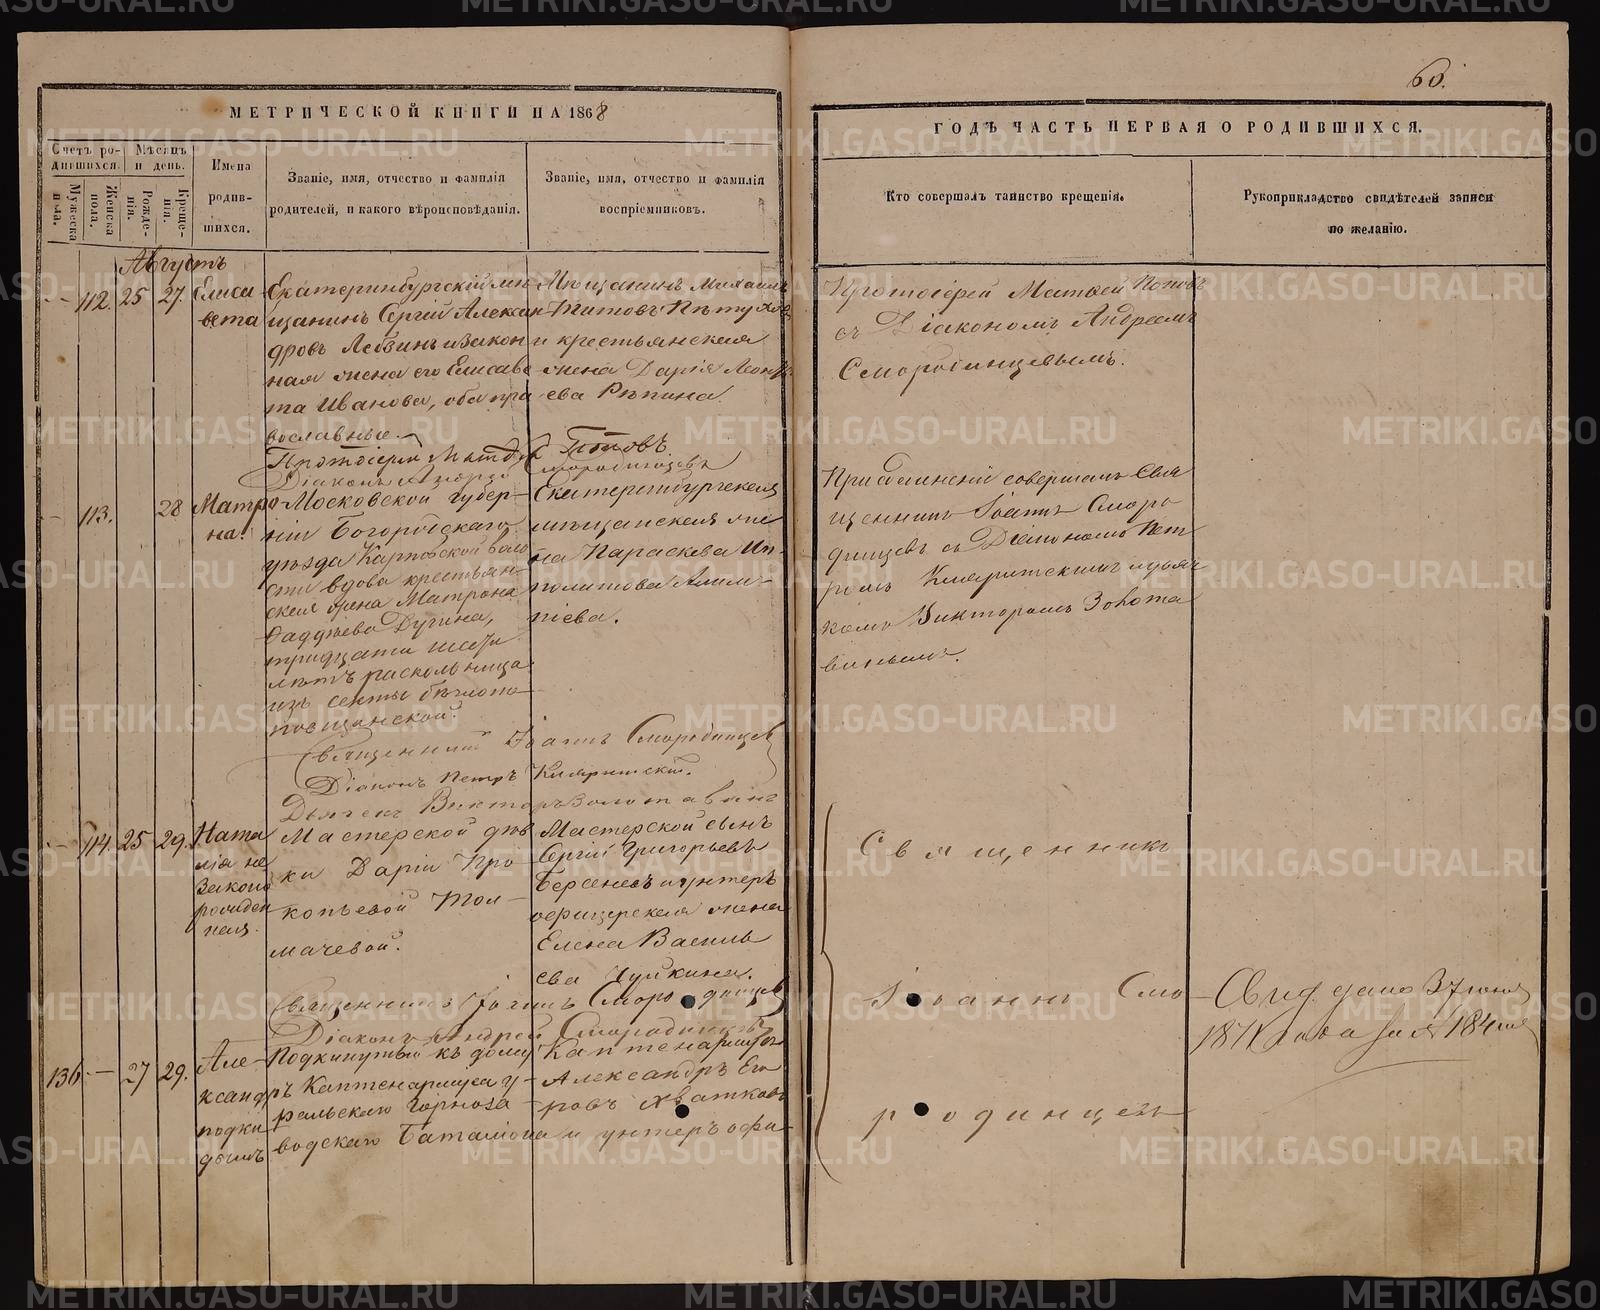 60.
МЕТРИЧЕСКОЙ КНИГИ НА 1868
ГОДЪ ЧАСТЬ ПЕРВАЯ О РОДИВШИХСЯ.
Счетъ ро-
дившихся.
Мужеска
пола.
Женска
пола.
Мѣсяцъ
и день.
Рожде-
нія.
Креще-
нія.
Имена
родив-
шихся.
Званіе, имя, отчество и фамилія
родителей, и какого вѣроисповѣданія.
Званіе, имя, отчество и фамилія
воспріемниковъ.
Кто совершалъ таинство крещенія.
Рукоприкладство свидѣтелей записи
по желанію.
Августъ
112. 25 27.
Елиса
вета
Екатеринбургскій мѣ
щанинъ Сергій Алексан
дровъ Лебзинъ и закон
ная жена его Елисаве
та Иванова, оба пра
вославные.
Мѣщанинъ Михаилъ
Титовъ Пѣтухов
и крестьянская
жена Дарія Леонть
ева Рѣпина.
Протоіерей Матѳей Поповъ
съ Діакономъ Андреемъ
Смородинцевымъ.
Протоіерей Матѳей Поповъ.
Діаконъ Андрей Смородинцевъ
113. 28
Матро
на.
Московской губер-
ніи Богородскаго
уѣзда Карповской воло
сти вдова крестьян-
ская жена Матрона
Фаддѣева Дугина,
тридцати шести
лѣтъ раскольница
изъ секты бѣглопо
повщинской.
Екатеринбургская
мѣщанская же
на Параскева Ип-
политова Алим-
піева.
При
совершалъ Свя
щенникъ Іоаннъ Сморо
динцевъ съ Діакономъ Пет
ромъ Кипаритскимъ и дьяч
комъ Викторомъ Золота
винымъ.
Священникъ Іоаннъ Смородинцевъ
Діаконъ Петръ Кипаритскій.
Дьячекъ Викторъ Золотавинъ
114. 25 29.
Ната
лія не
законо
рожден
ная.
Мастерской дѣв
ки Даріи Про
копьевой Тол-
мачевой.
Мастерской сынъ
Сергій Григорьевъ
Берсеневъ и унтеръ
офицерская жена
Елена Василь
ева Чупкина.
Священникъ
Священникъ Іоаннъ Смородинцевъ
Діаконъ Андрей Смородинцевъ
Іоаннъ Смо
родинцевъ
136 — 27 29.
Але-
ксандръ
подки
дышъ
Подкинутый къ дому
Каптенармуса у-
ральскаго Горноза-
водскаго Баталіона
Каптенармусъ
Александръ Его
ровъ Хватковъ
и унтеръ офи-
Свид. дано
1871 года за № 184
METRIKI.GASO-URAL.RU